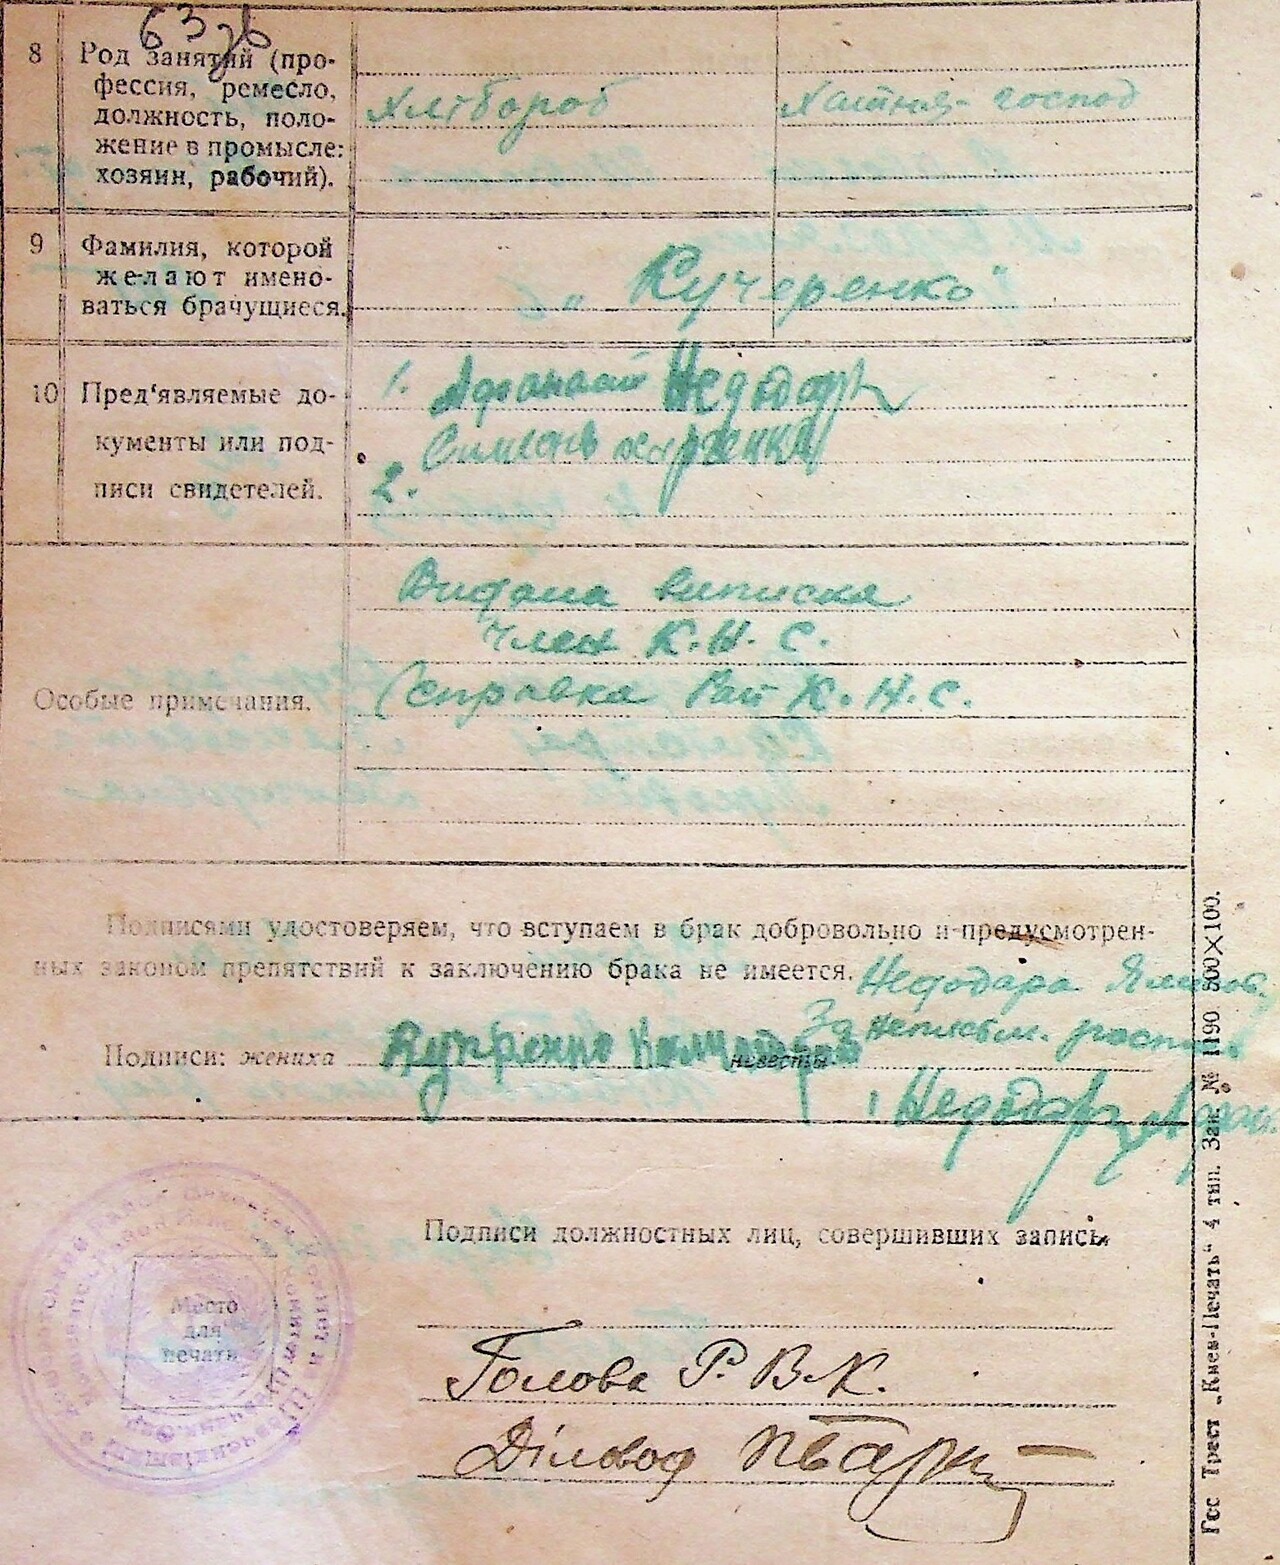 63 зв
8 Род занятий (про-
фессия, ремесло,
должность, поло-
жение в промысле:
хозяин, рабочий).
Хлібороб
Хатня- господ
9 Фамилия, которой
желают имено-
ваться брачущиеся.
„ Кучеренко "
10 Пред'являемые до-
кументы или под-
писи свидетелей.
1. Афанасій Недодара
2. Симеонъ
Особые примечания.
Видана виписка
Член К. Н. С.
Справка Рай К. Н. С.
Подписями удостоверяем, что вступаем в брак добровольно и предусмотрен-
ных законом препятствий к заключению брака не имеется.
Недодара
За неписьм. роспис.
Подписи: жениха
невесты
Недодара
Подписи должностных лиц, совершивших запись
Место
для
печати
Голова Р. В. К.
Діловод
Гос Трест „Киев-Печать" 4 тип. Зак. № 1190 500×100.